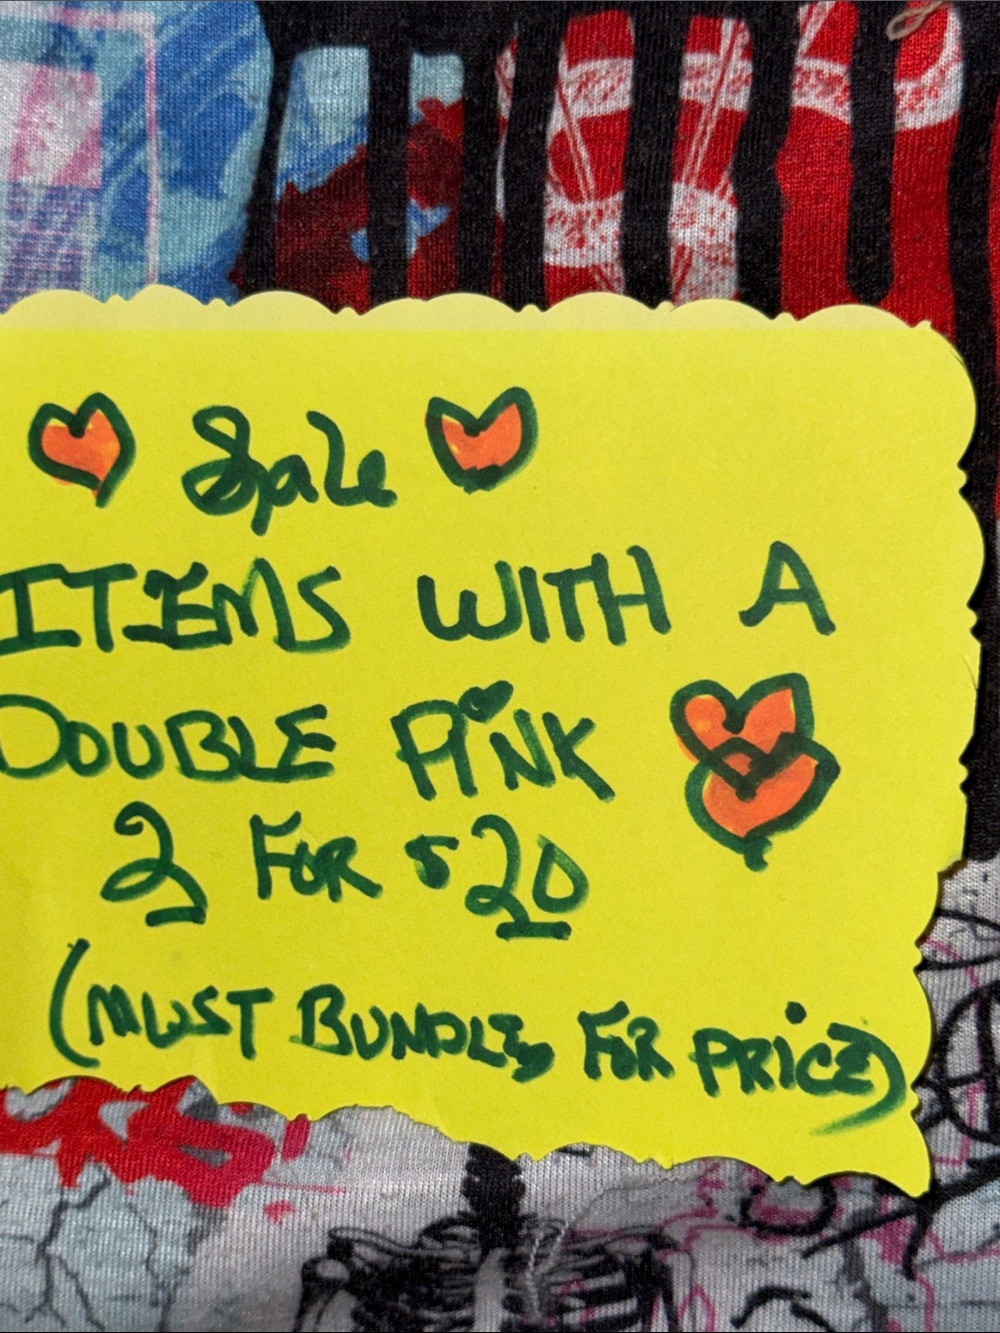 Sale
ITEMS WITH A
DOUBLE PiNK
2 FOR $20
(MUST BUNDLE FOR PRiCE)